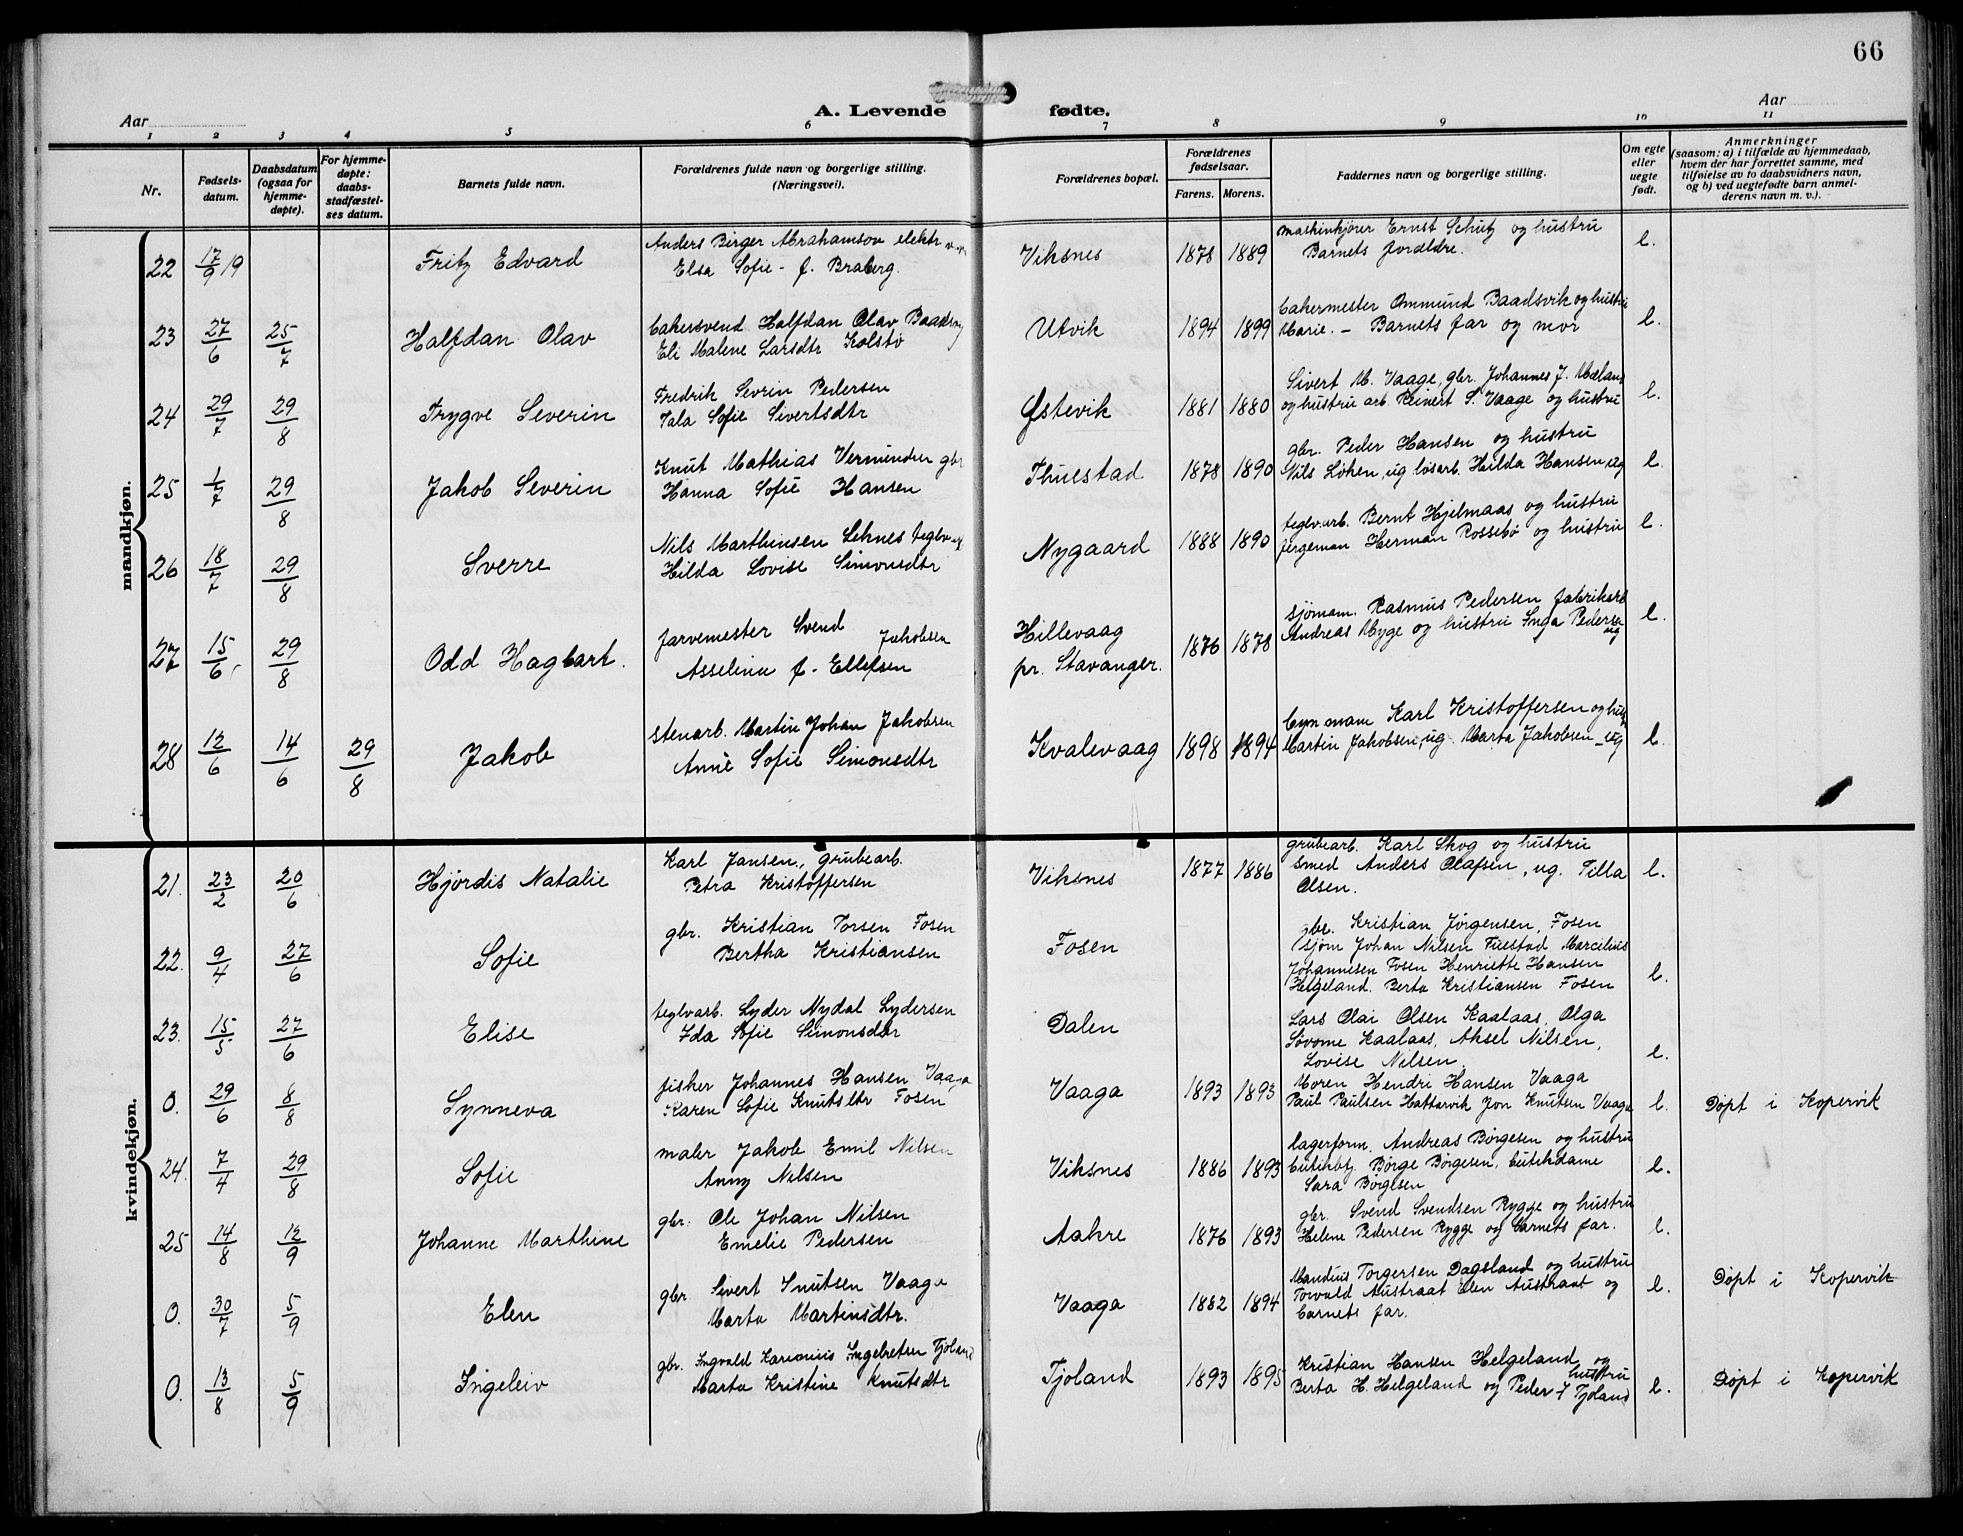 66
Aar
A. Levende fødte.
Aar
1 2 3 4 5 6 7 8 9 10 11
Nr.
Fødsels-
datum.
Daabsdatum
(ogsaa for
hjemme-
døpte).
For hjemme-
døpte:
daabs-
stadfæstel-
ses datum.
Barnets fulde navn.
Forældrenes fulde navn og borgerlige stilling.
(Næringsvei).
Forældrenes bopæl.
Forældrenes
fødselsaar.
Farens. Morens.
Faddernes navn og borgerlige stilling.
Om egte
eller
uegte
født.
Anmerkninger
(saasom: a) i tilfælde av hjemmedaab,
hvem der har forrettet samme, med
tilføielse av to daabsvidners navn,
og b) ved uegtefødte barn anmel-
derens navn m. v.).
mandkjøn.
22 17/9 19 Fritz Edvard
Anders Birger Abrahamson elektr
Elsa Sofie - f. Braberg.
Viksnes 1878 1889
maskinkjører Ernst Schutz og hustru
Barnets forældre.
l.
23 27/6 25/7 Halfdan Olav
bakersvend Halfdan Olav Baadsvig
Eli Malene Larsdtr Kolstø
Utvik 1894 1899
bakermester Ommund Baadsvik og hustru
Marie. - Barnets far og mor
l.
24 29/7 29/8 Trygve Severin
Fredrik Sevrin Pedersen
Tala Sofie Sivertsdtr
Østevik 1881 1880
Sivert M. Vaage, gbr. Johannes J. Mæland
og hustru arb. Reinert S. Vaage og hustru
l.
25 1/7 29/8 Jakob Severin
Knut Mathias Vermundsen gbr
Hanna Sofie Hansen
Thuestad 1878 1890
gbr. Peder Hansen og hustru
Nils Løken, ug løsarb. Hilda Hansen, ug
l.
26 18/7 29/8 Sverre
Nils Marthinsen Leknes teglv
Hilda Lovise Simonsdtr
Nygaard 1888 1890
teglv.arb. Bernt Hjelmaas og hustru
fergeman Herman Rossebø og hustru
l.
27 15/6 29/8 Odd Hagbart.
farvemester Svend Jakobsen
Asselina f. Ellefsen
Hillevaag
pr. Stavanger.
1876 1878
sjømam. Rasmus Pedersen fabrikarb
Andreas Myge og hustru Inga Pedersen
ug
l.
28 12/6 14/6 29/8 Jakob
stenarb. Martin Johan Jakobsen
Anne Sofie Simonsdtr
Kvalevaag 1898 1894
Karl Kristoffersen og hustru
Martin Jakobsen, ug. Marta Jakobsen - ug
l.
kvindekjøn.
21. 23/2 20/6 Hjørdis Natalie
Karl Jansen, grubearb.
Petra Kristoffersen
Viksnes 1877 1886
grubearb. Karl Skog og hustru
smed Anders Olafsen, ug. Tilla
Olsen.
l.
22. 9/4 27/6 Sofie
gbr. Kristian Torsen Fosen
Bertha Kristiansen
Fosen
gbr. Kristian Jørgensen, Fosen
sjøm Johan Nilsen Tuestad Marcelius
Johannesen Fosen Henriette Hansen
Helgeland. Berta Kristiansen Fosen
l.
23. 15/5 27/6 Elise
teglvarb. Lyder Nydal Lydersen
Ida Sofie Simonsdtr
Dalen
Lars Olai Olsen Kaalaas, Olga
Søvome Kaalaas, Aksel Nilsen,
Lovise Nilsen,
l.
0. 29/6 8/8 Synneva
fisker Johannes Hansen Vaaga
Karen Sofie Knutsdtr Fosen
Vaaga 1893 1893
Moren Hendri Hansen Vaaga
Paul Paulsen Hattarvik Jon Knutsen Vaaga
l.
Døpt i Kopervik
24. 7/4 29/8 Sofie
maler Jakob Emil Nilsen
Anny Nilsen
Viksnes 1886 1893
lagerform. Andreas Børgesen og hustru
butikbtj. Børge Børgesen, butikdame
Sara Børgesen
l.
25 14/8 12/9 Johanne Marthine
gbr. Ole Johan Nilsen
Emelie Pedersen
Aakre 1876 1893
gbr. Svend Svendsen Rygge og hustru
Helene Pedersen Rygge og barnets far.
l.
0. 30/7 5/9 Elen
gbr Sivert Knutsen Vaaga
Marta Martinsdtr.
Vaaga 1882 1894
Mandius Torgersen Dagsland og hustru
Torvald Austraat Elen Austraat og
barnets far.
l.
Døpt i Kopervik
0. 13/8 5/9 Ingeleiv
gbr. Ingvald Karenius Ingebretsen Tjoland
Marta Kristine Knutsdtr
Tjoland 1893 1895
Kristian Hansen Helgeland og
hustru
Berta H. Helgeland og Peder J Tjoland
l.
Døpt i Kopervik